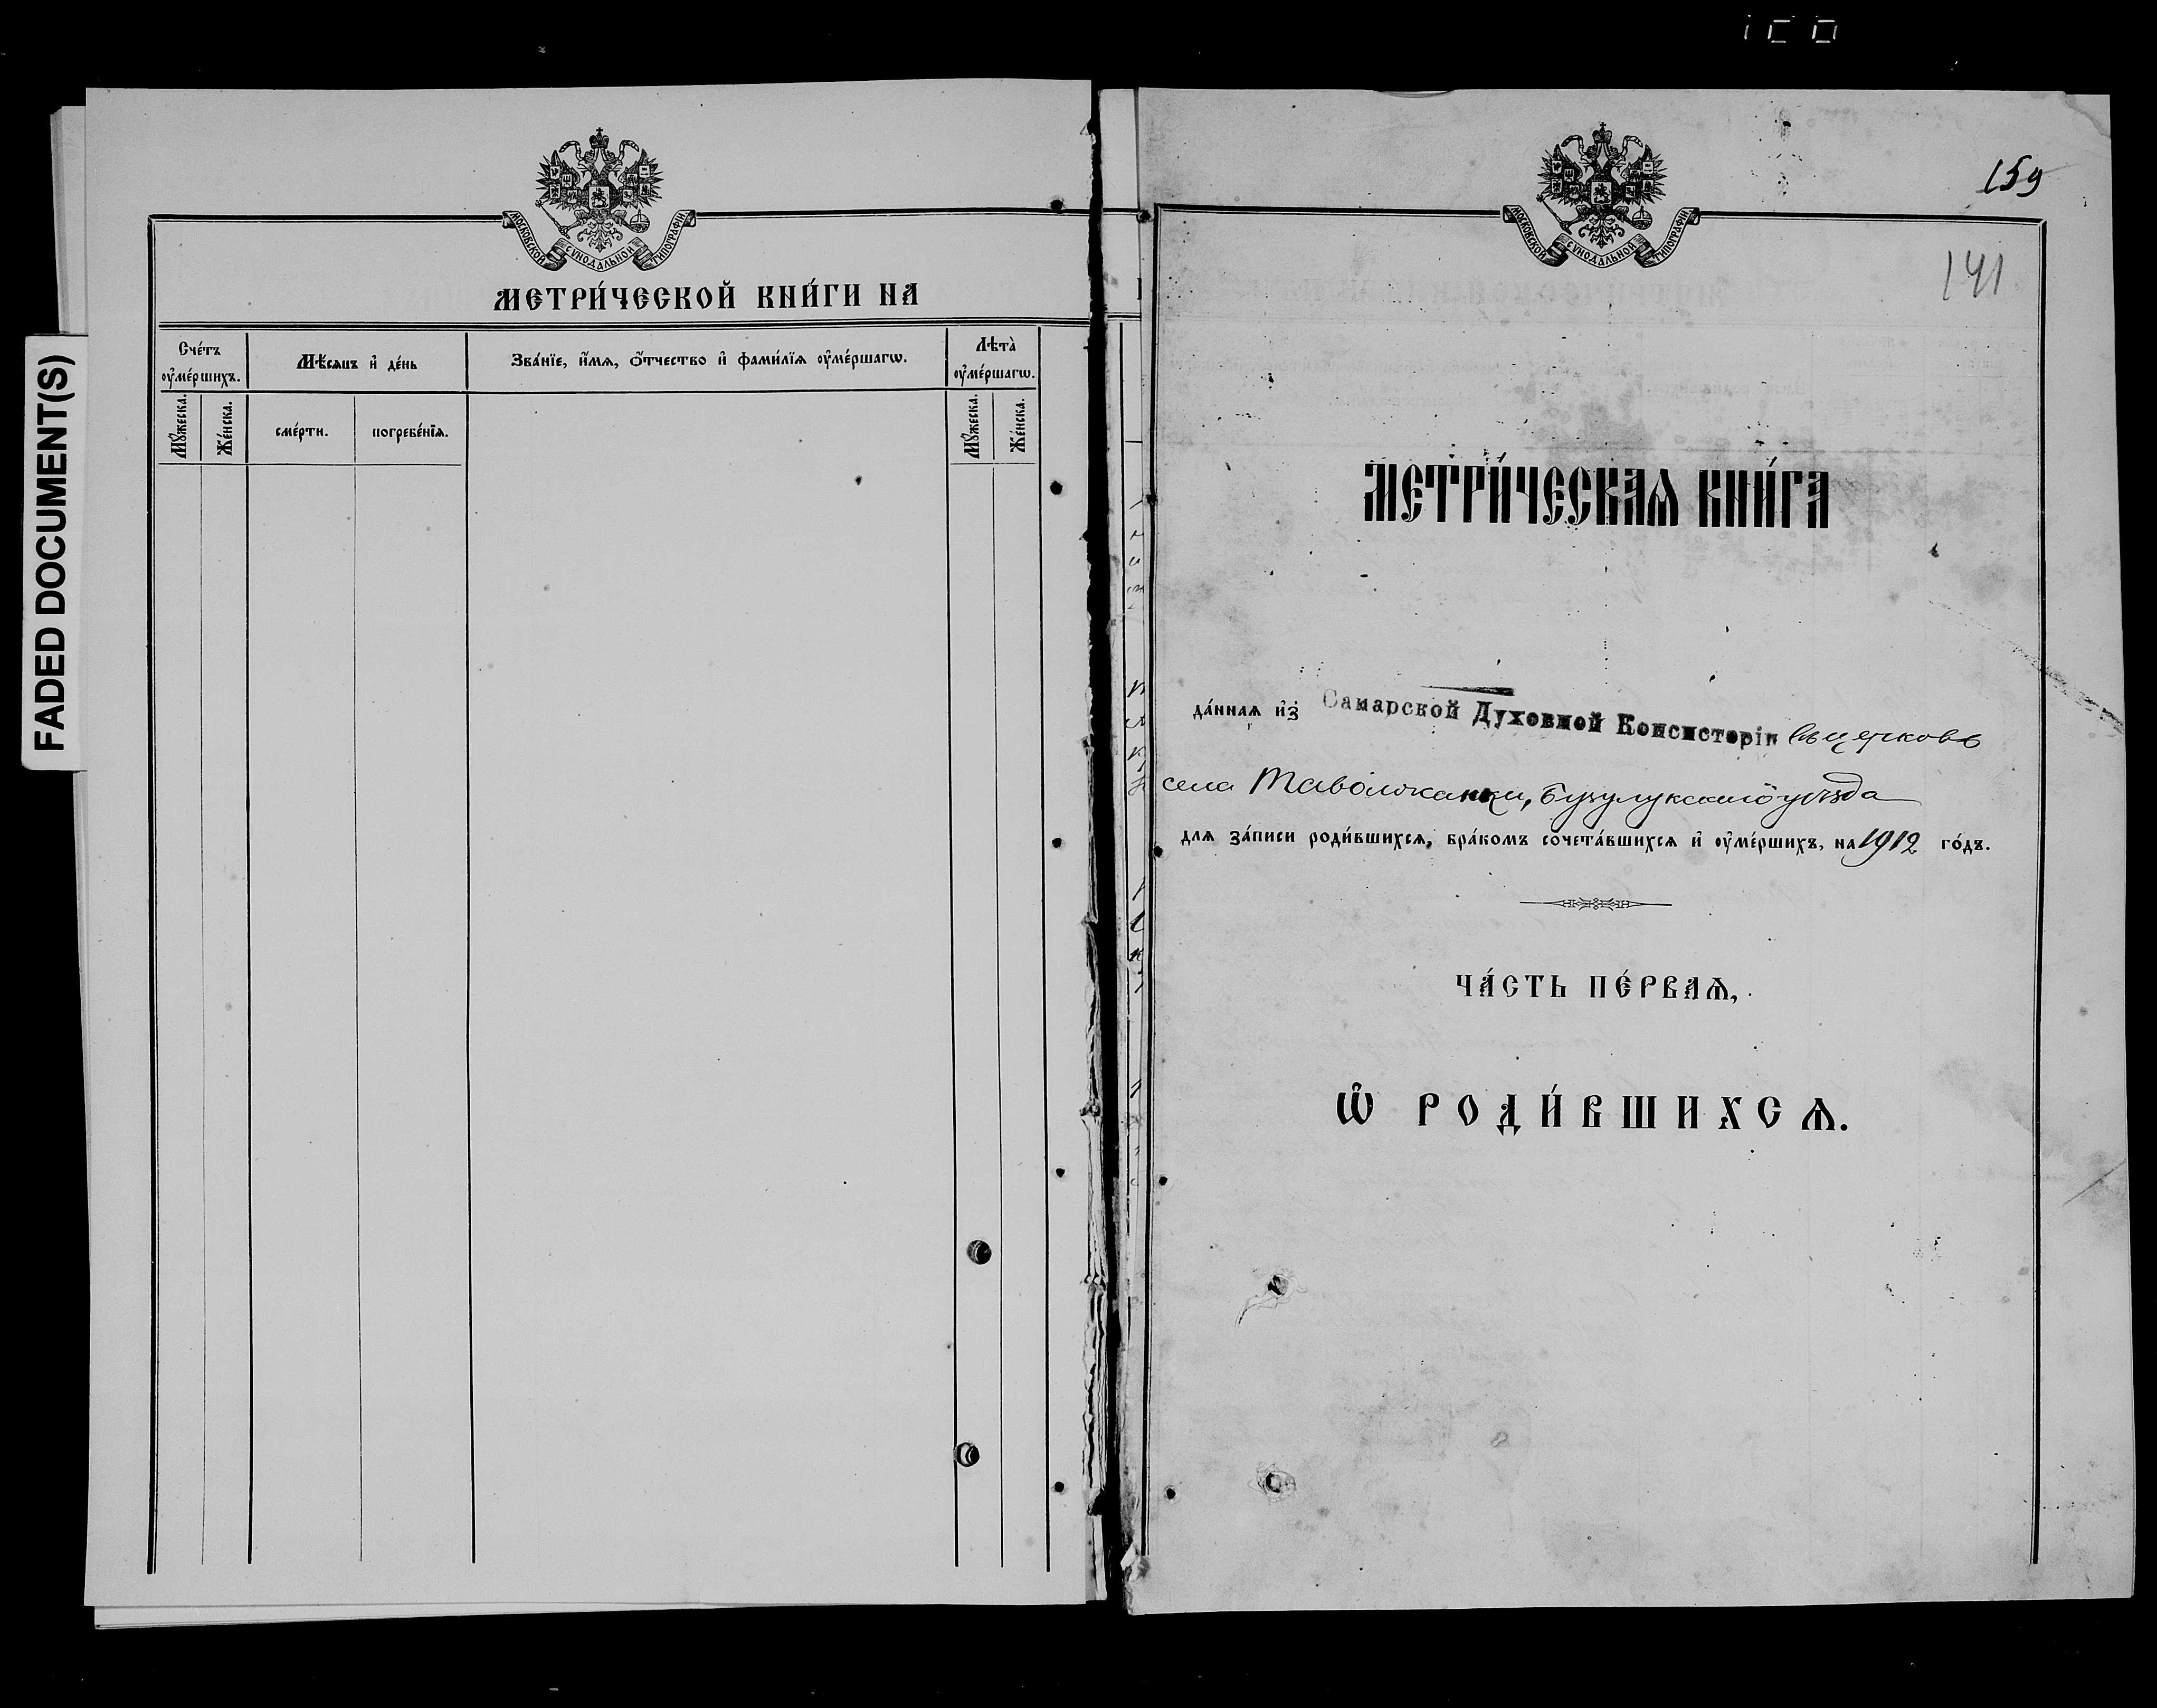 FADED DOCUMENT(S)
МОСКОВСКОЙ СѴНОДАЛЬНОЙ ТИПОГРАФІИ
МЕТРИ́ЧЕСКОЙ КНИ́ГИ НА
Сче́тъ ᲂу҆ме́ршихъ.
Мѣ́сяцъ и҆ де́нь
Зва́нїе, и҆́мѧ, ѻ҆́тчество и҆ фами́лїѧ ᲂу҆ме́ршагѡ.
Лѣта̀ ᲂу҆ме́ршагѡ.
Мꙋ́жеска.
Же́нска.
сме́рти.
погребе́нїѧ.
Мꙋ́жеска.
Же́нска.
159
МОСКОВСКОЙ СѴНОДАЛЬНОЙ ТИПОГРАФІИ
141
МЕТРИ́ЧЕСКАѦ КНИ́ГА
да́ннаѧ и҆з̾ Самарской Духовной Консисторіи въ церковь
села Таволжанки, Бузулукскаго уѣзда
для за́писи роди́вшихсѧ, бра́комъ сочета́вшихсѧ и҆ ᲂу҆ме́ршихъ, на 1912 го́дъ.
ЧА́СТЬ ПЕ́РВАѦ,
Ѡ҆ РОДИ́ВШИХСѦ.